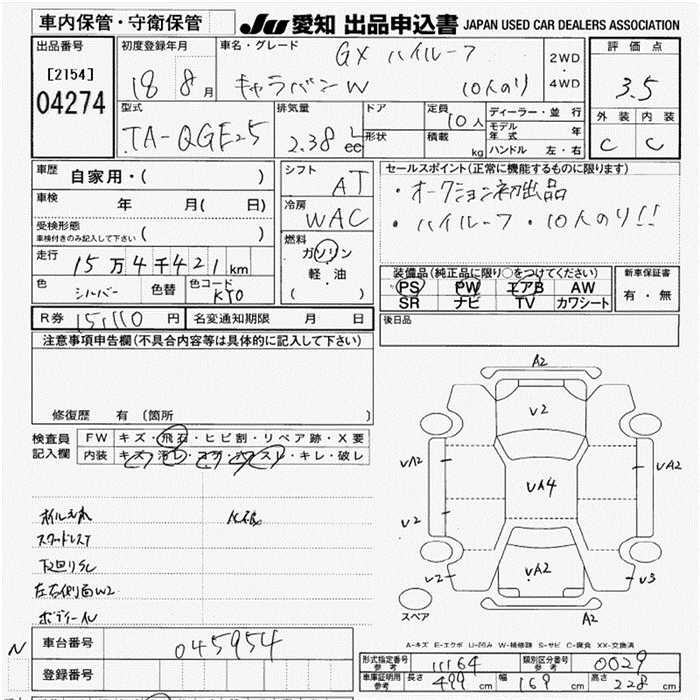 車内保管・守衛保管
JU 愛知 出品申込書 JAPAN USED CAR DEALERS ASSOCIATION
出品番号
[2154]
04274
初度登録年月
18 8月
車名・グレード
GX ハイルーフ
キャラバンW 10人のり
2WD
・
4WD
評価点
3.5
外装 内装
C C
型式
TA-QGE25
排気量
2.38 L cc
ドア
形状
定員
10人
積載
kg
ディーラー・並行
モデル年式 年
ハンドル 左・右
車歴
自家用・( )
車検
年 月( 日)
受検形態
車検付きのみ記入して下さい ( )
走行
15万4千421km
色
シルバー
色替
色コード
KY0
シフト
AT
冷房
WAC
燃料
ガソリン
軽・油
( )
セールスポイント(正常に機能するものに限ります)
・オークション初出品
・ハイルーフ・10人のり!!
装備品(純正品に限り○をつけてください)
PS PW エアB AW
SR ナビ TV カワシート
新車保証書
有・無
R券 15,110 円
名変通知期限 月 日
後日品
注意事項申告欄(不具合内容等は具体的に記入して下さい)
修復歴 有 (箇所 )
検査員記入欄
FW キズ・飛石・ヒビ割・リペア跡・X要
内装 キズ・汚レ・コゲ・穴・スレ・キレ・破レ
オイルもれ
スタッドレスT
下回りSC
左右側面W2
A2
V2
VA2
V2
VA4
VA2
VA2
V2
V3
A2
スペア
A-キズ E-エクボ U-凹み W-補修跡 S-サビ C-腐食 XX-交換済
N
車台番号
045954
登録番号
形式指定番号
参考
11164
類別区分番号
参考
0029
車庫証明用
参考
長さ 499 cm 幅 169 cm 高さ 228 cm